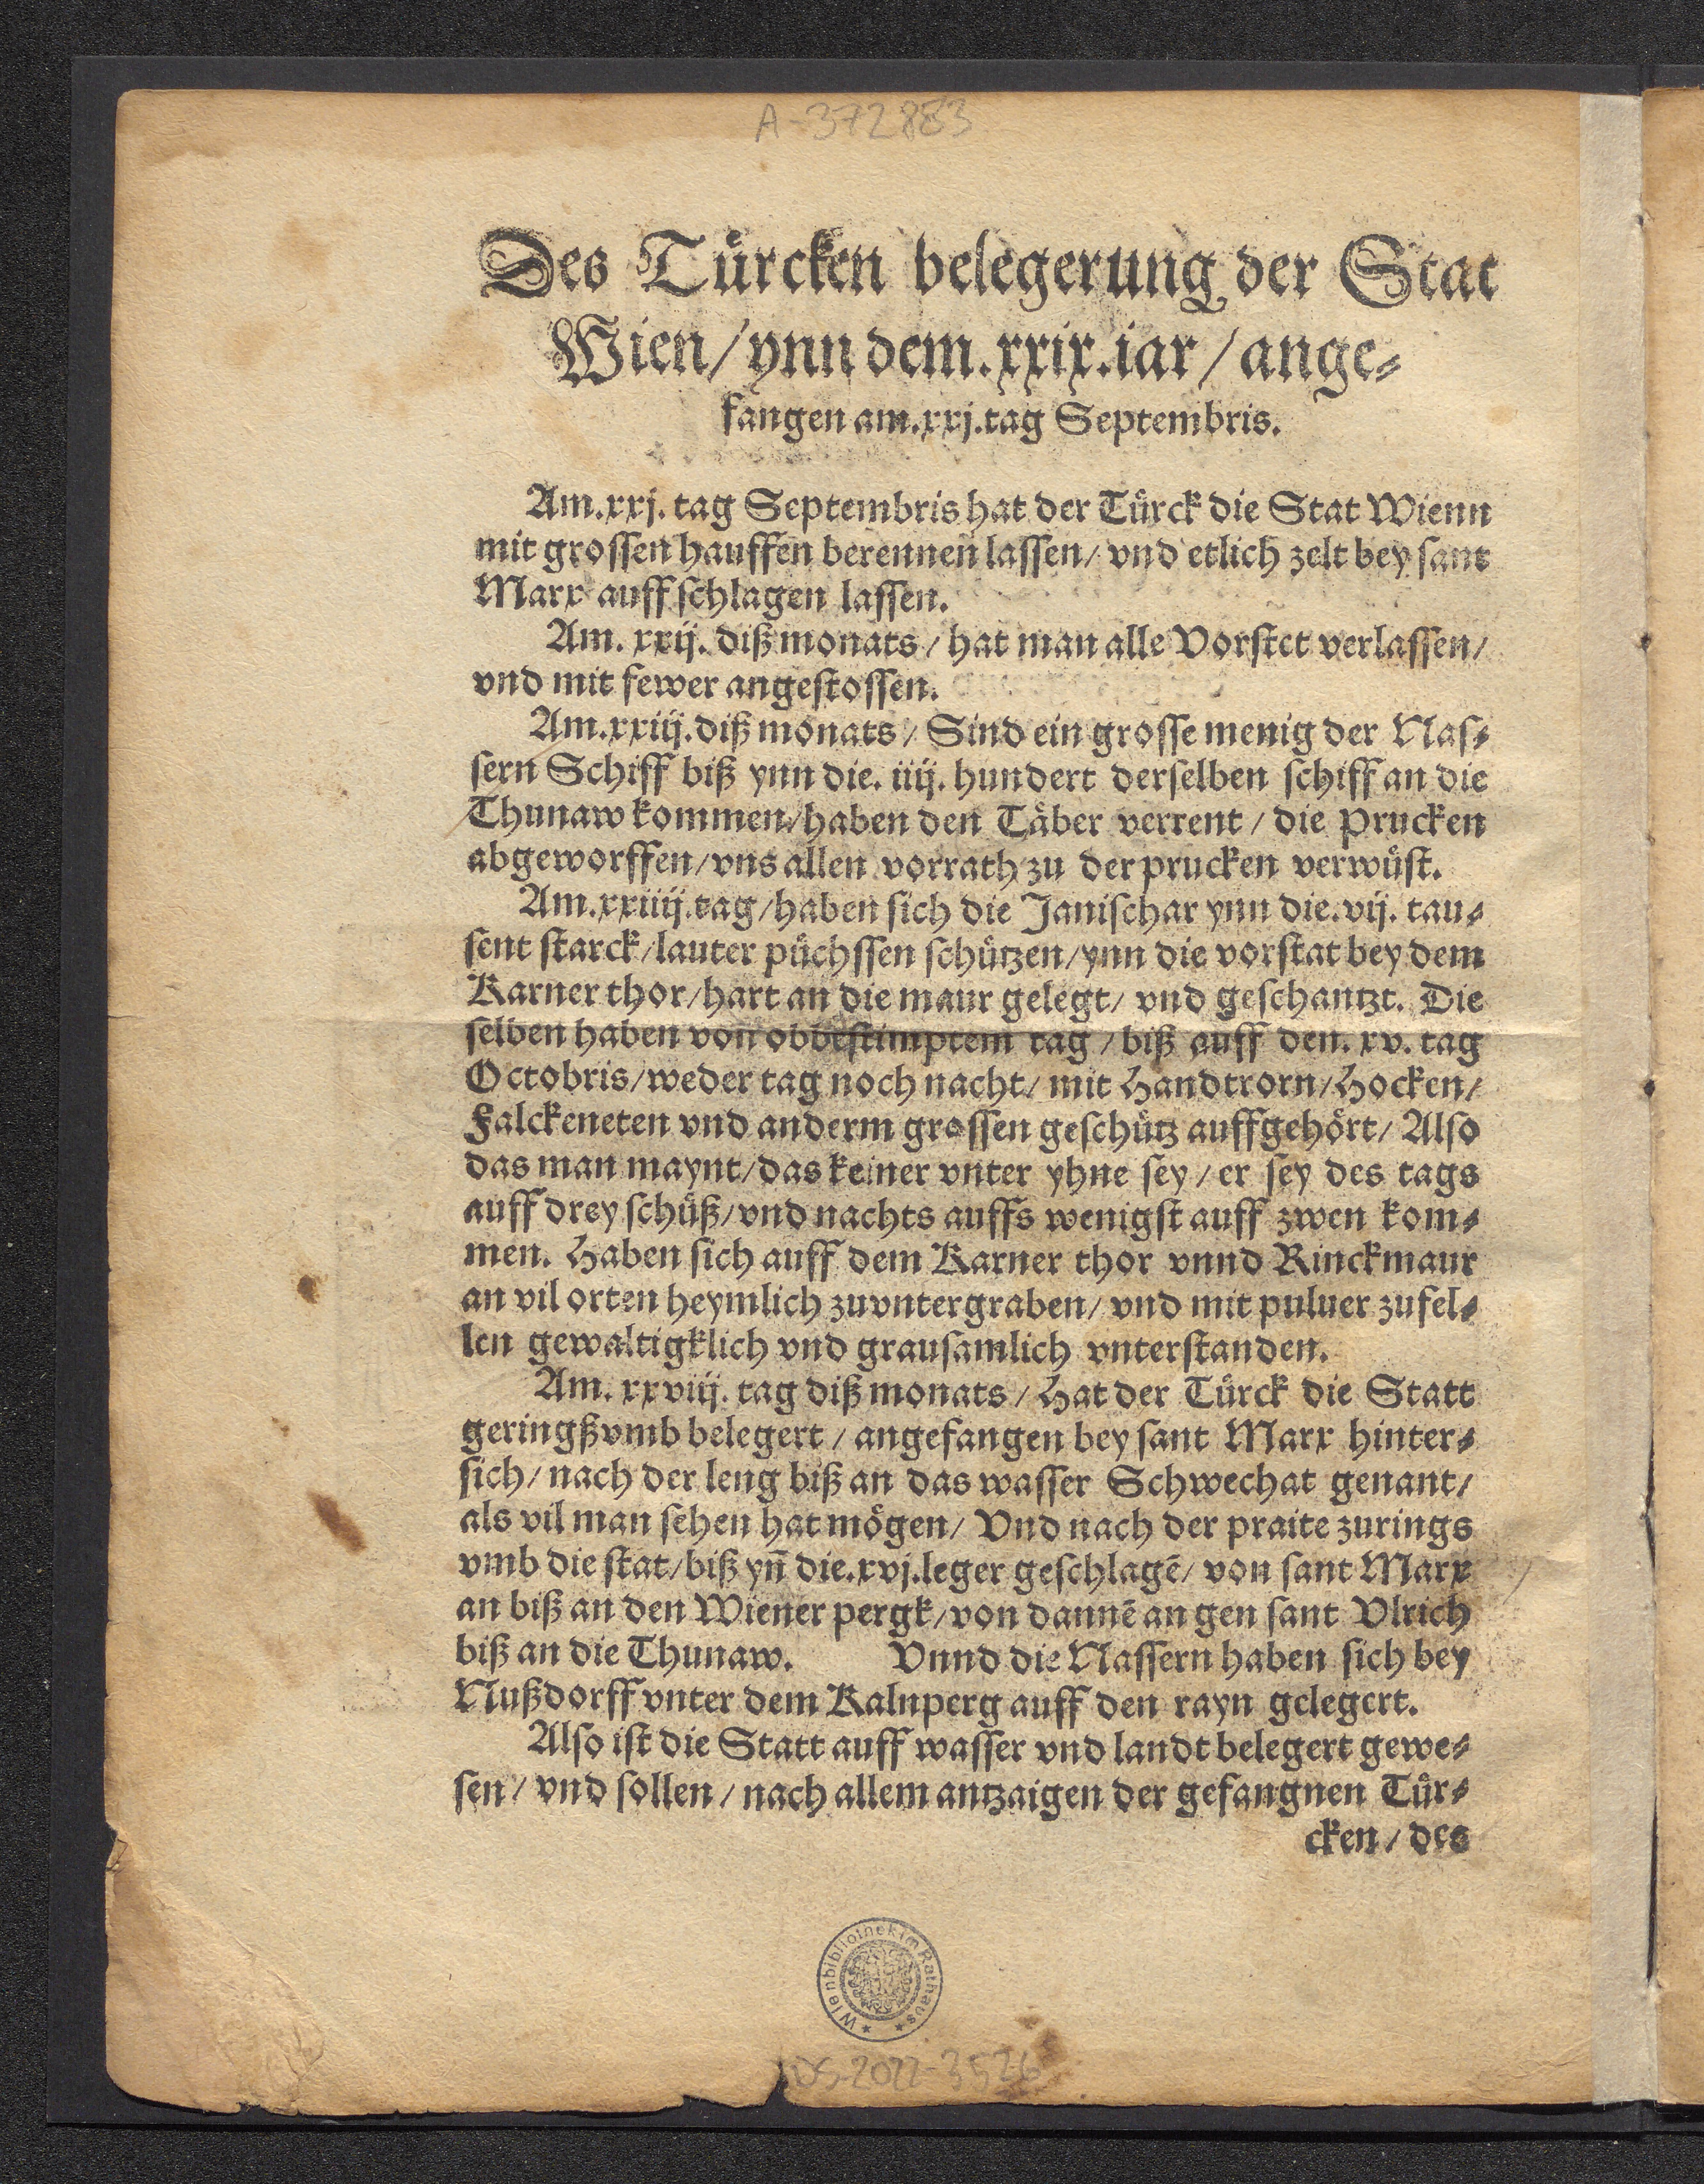 A-372883
Des Tůrcken belegerung der Stat
Wien/ ynn dem.xxix.iar/ ange⸗
fangen am.xxj.tag Septembris.
Am.xxj. tag Septembris hat der Tůrck die Stat Wienn
mit grossen hauffen berennen lassen/ vnd etlich zelt bey sant
Marx auff schlagen lassen.
Am. xxij. diß monats/ hat man alle Vorstet verlassen/
vnd mit fewer angestossen.
Am.xxiij.diß monats/ Sind ein grosse menig der Nas⸗
sern Schiff biß ynn die. iiij. hundert derselben schiff an die
Thunaw kommen/ haben den Tåber verrent/ die prucken
abgeworffen/ vns allen vorrath zu der prucken verwůst.
Am.xxiiij.tag/ haben sich die Janischar ynn die.vij. tau⸗
sent starck/ lauter půchssen schůtzen/ ynn die vorstat bey dem
Karner thor/ hart an die maur gelegt/ vnd geschantzt. Die
selben haben von obbestimptem tag/ biß auff den. xv. tag
Octobris/ weder tag noch nacht/ mit Handtrorn/ Hocken/
Falckeneten vnd anderm grossen geschůtz auffgehört/ Also
das man maynt/ das keiner vnter yhne sey/ er sey des tags
auff drey schůß/ vnd nachts auffs wenigst auff zwen kom⸗
men. Haben sich auff dem Karner thor vnnd Rinckmaur
an vil orten heymlich zuvntergraben/ vnd mit puluer zufel⸗
len gewaltigklich vnd grausamlich vnterstanden.
Am. xxviij. tag diß monats/ Hat der Tůrck die Statt
geringßvmb belegert/ angefangen bey sant Marx hinter⸗
sich/ nach der leng biß an das wasser Schwechat genant/
als vil man sehen hat mögen/ Vnd nach der praite zurings
vmb die stat/ biß yn̄ die.xvj.leger geschlagē/ von sant Marx
an biß an den Wiener pergk/ von dannē an gen sant Vlrich
biß an die Thunaw. Vnnd die Nassern haben sich bey
Nußdorff vnter dem Kalnperg auff den rayn gelegert.
Also ist die Statt auff wasser vnd landt belegert gewe⸗
sen/ vnd sollen/ nach allem antzaigen der gefangnen Tůr⸗
cken/ des
Wienbibliothek im Rathaus
DS-2022-3526